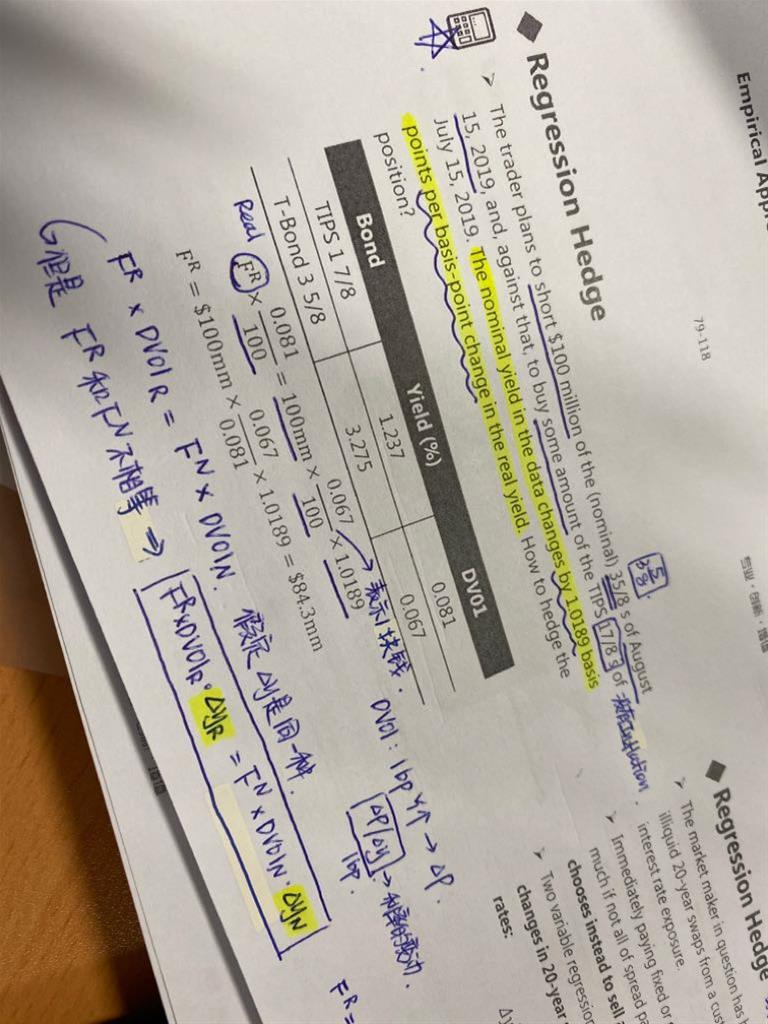 Empirical
79-118
◆ Regression Hedge
➢ The trader plans to short $100 million of the (nominal) 35/8 s of August
15, 2019, and, against that, to buy some amount of the TIPS 17/8 s of
July 15, 2019. The nominal yield in the data changes by 1.0189 basis
points per basis-point change in the real yield. How to hedge the
position?
3 5/8
Inflation.
Bond Yield (%) DV01
TIPS 1 7/8 1.237 0.081
T-Bond 3 5/8 3.275 0.067
Real
F^R × 0.081/100 = 100mm × 0.067/100 × 1.0189
→ 表示1块钱.
F^R = $100mm × 0.067/0.081 × 1.0189 = $84.3mm
DV01: 1bp y↑ → ΔP.
ΔP/Δy → 利率的变动.
1bp.
F^R × DV01R = F^N × DV01N. 假定 Δy是同一种.
但是 F^R 和 F^N 不相等 ⇒ F^R×DV01R·ΔyR = F^N×DV01N·ΔyN
F^R =
专业·创新·增值
◆ Regression Hedge
➢ The market maker in question has
illiquid 20-year swaps from a
interest rate exposure.
➢ Immediately paying fixed or
much if not all of spread
chooses instead to sell
➢ Two variable
changes in 20-year
rates: